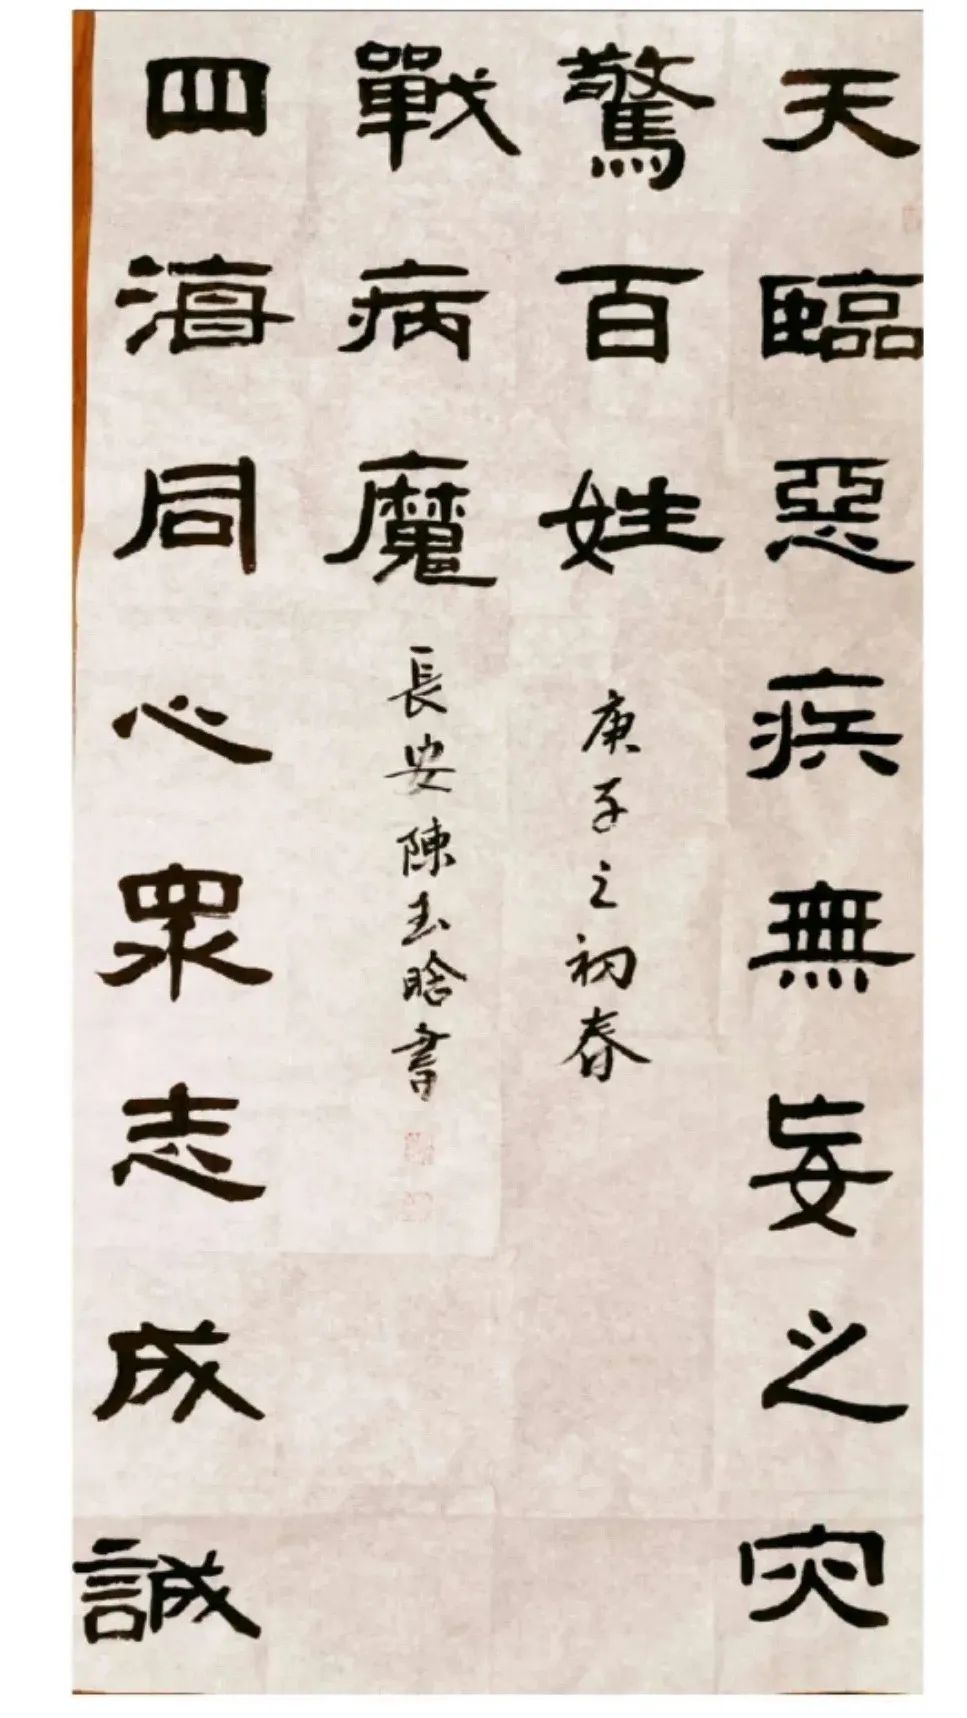 天臨惡疾無妄之灾
驚百姓
戰病魔
四海同心眾志成誠
庚子之初春
長安陳玉晗書